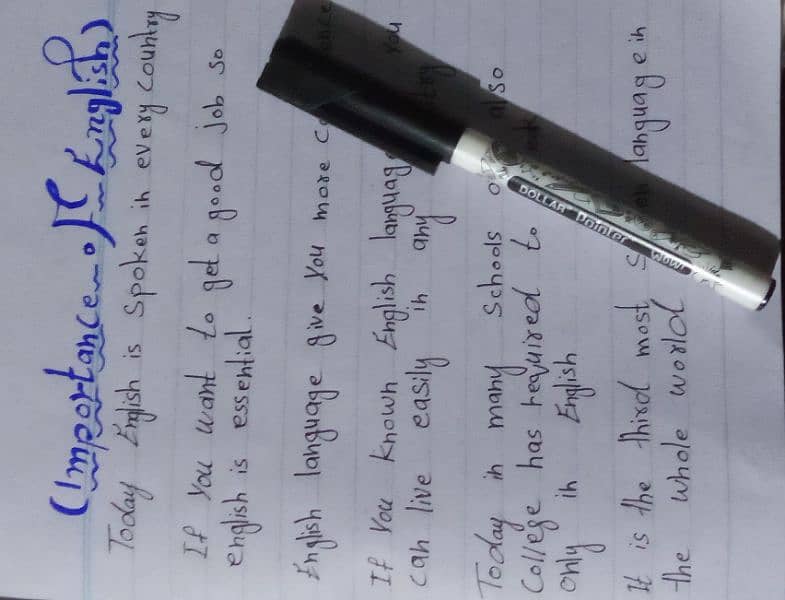 (Importance of English)
Today English is Spoken in every country
If you want to get a good job so
english is essential.
English language give you more
If you known English language you
can live easily in any
Today in many Schools also
College has required to
only in English
It is the third most language in
the whole world
DOLLAR Pointer